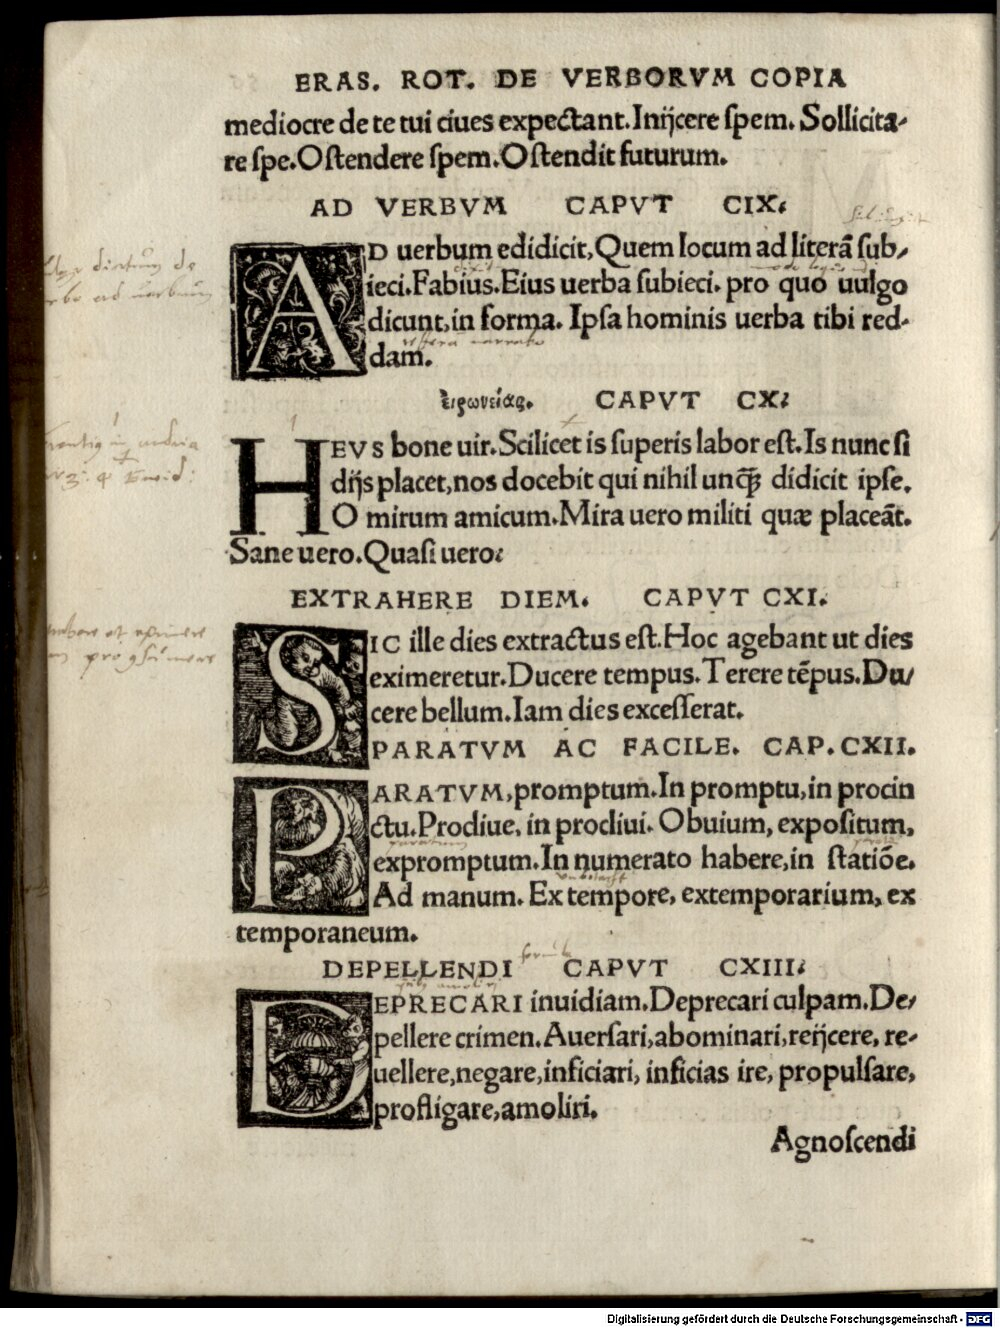 ERAS. ROT. DE VERBORVM COPIA
mediocre de te tui ciues expectant. Inijcere ſpem. Sollicita-
re ſpe. Oſtendere ſpem. Oſtendit futurum.
AD VERBVM CAPVT CIX.
AD uerbum edidicit, Quem locum ad literã ſub-
ieci. Fabius. Eius uerba ſubieci. pro quo uulgo
dicunt, in forma. Ipſa hominis uerba tibi red-
dam.
εἰρωνείας. CAPVT CX.
HEVS bone uir. Scilicet is ſuperis labor eſt. Is nunc ſi
dijs placet, nos docebit qui nihil unꝗ̃ didicit ipſe.
O mirum amicum. Mira uero militi quæ placeãt.
Sane uero. Quaſi uero.
EXTRAHERE DIEM. CAPVT CXI.
SIC ille dies extractus eſt. Hoc agebant ut dies
eximeretur. Ducere tempus. Terere tẽpus. Du-
cere bellum. Iam dies exceſſerat.
PARATVM AC FACILE. CAP. CXII.
PARATVM, promptum. In promptu, in procin
ctu. Procliue, in procliui. Obuium, expoſitum,
expromptum. In numerato habere, in ſtatiõe.
Ad manum. Ex tempore, extemporarium, ex
temporaneum.
DEPELLENDI CAPVT CXIII.
DEPRECARI inuidiam. Deprecari culpam. De-
pellere crimen. Auerſari, abominari, reijcere, re-
uellere, negare, inficiari, inficias ire, propulſare,
profligare, amoliri.
Agnoſcendi
Digitalisierung gefördert durch die Deutsche Forschungsgemeinschaft - DFG